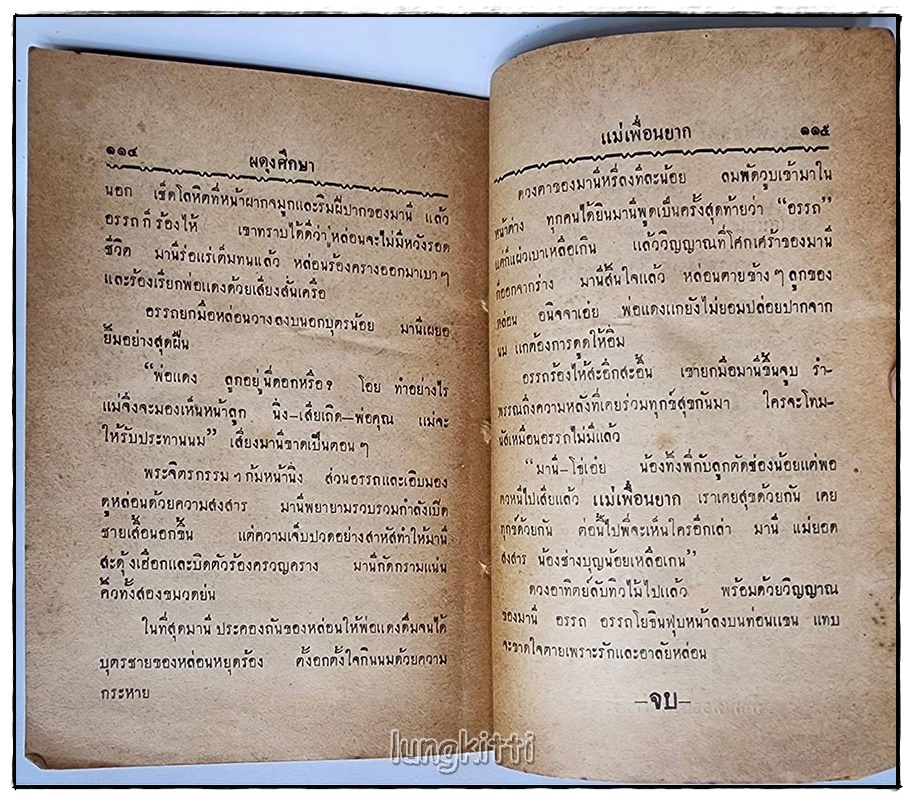 ๑๑๔ ผดุงศึกษา
นอก เช็ดโลหิตที่หน้าผากจมูกและริมฝีปากของมานี แล้ว
อรรถก็ร้องไห้ เขาทราบได้ดีว่าหล่อนจะไม่มีหวังรอด
ชีวิต มานีร่อแร่เต็มทนแล้ว หล่อนร้องครางออกมาเบา ๆ
และร้องเรียกพ่อแดงด้วยเสียงสั่นเครือ
อรรถยกมือหล่อนวางลงบนอกบุตรน้อย มานีเผยอ
ยิ้มอย่างสุดฝืน
“พ่อแดง ลูกอยู่นี่ดอกหรือ? โอย ทำอย่างไร
แม่จึงจะมองเห็นหน้าลูก นิ่ง–เสียเถิด–พ่อคุณ แม่จะ
ให้รับประทานนม” เสียงมานีขาดเป็นตอน ๆ
พระจิตรกรรม ฯ ก้มหน้านิ่ง ส่วนอรรถและเอิบมอง
ดูหล่อนด้วยความสงสาร มานีพยายามรวบรวมกำลังเปิด
ชายเสื้อนอกขึ้น แต่ความเจ็บปวดอย่างสาหัสทำให้มานี
สะดุ้งเฮือกและบิดตัวร้องครวญคราง มานีกัดกรามแน่น
คิ้วทั้งสองขมวดย่น
ในที่สุดมานีประคองถันของหล่อนให้พ่อแดงดื่มจนได้
บุตรชายของหล่อนหยุดร้อง ตั้งอกตั้งใจกินนมด้วยความ
กระหาย
แม่เพื่อนยาก ๑๑๕
ดวงตาของมานีหรี่ลงทีละน้อย ลมพัดวูบเข้ามาใน
หน้าต่าง ทุกคนได้ยินมานีพูดเป็นครั้งสุดท้ายว่า “อรรถ”
แต่ก็แผ่วเบาเหลือเกิน แล้ววิญญาณที่โศกเศร้าของมานี
ก็ออกจากร่าง มานีสิ้นใจแล้ว หล่อนตายข้าง ๆ ลูกของ
หล่อน อนิจจาเอ๋ย พ่อแดงแกยังไม่ยอมปล่อยปากจาก
นม แกต้องการดูดให้อิ่ม
อรรถร้องไห้สะอึกสะอื้น เขายกมือมานีขึ้นจูบ รำ–
พรรณถึงความหลังที่เคยร่วมทุกข์สุขกันมา ใครจะโทม–
นัสเหมือนอรรถไม่มีแล้ว
“มานี–โธ่เอ๋ย น้องทิ้งพี่กับลูกตัดช่องน้อยแต่พอ
ตวหนีไปเสียแล้ว แม่เพื่อนยาก เราเคยสุขด้วยกัน เคย
ทุกข์ด้วยกัน ต่อนี้ไปพี่จะเห็นใครอีกเล่า มานี แม่ยอด
สงสาร น้องช่างบุญน้อยเหลือเกน”
ดวงอาทิตย์ลับทิวไม้ไปแล้ว พร้อมด้วยวิญญาณ
ของมานี อรรถ อรรถโยธินฟุบหน้าลงบนท่อนแขน แทบ
จะขาดใจตายเพราะรักและอาลัยหล่อน
–จบ–
lungkitti